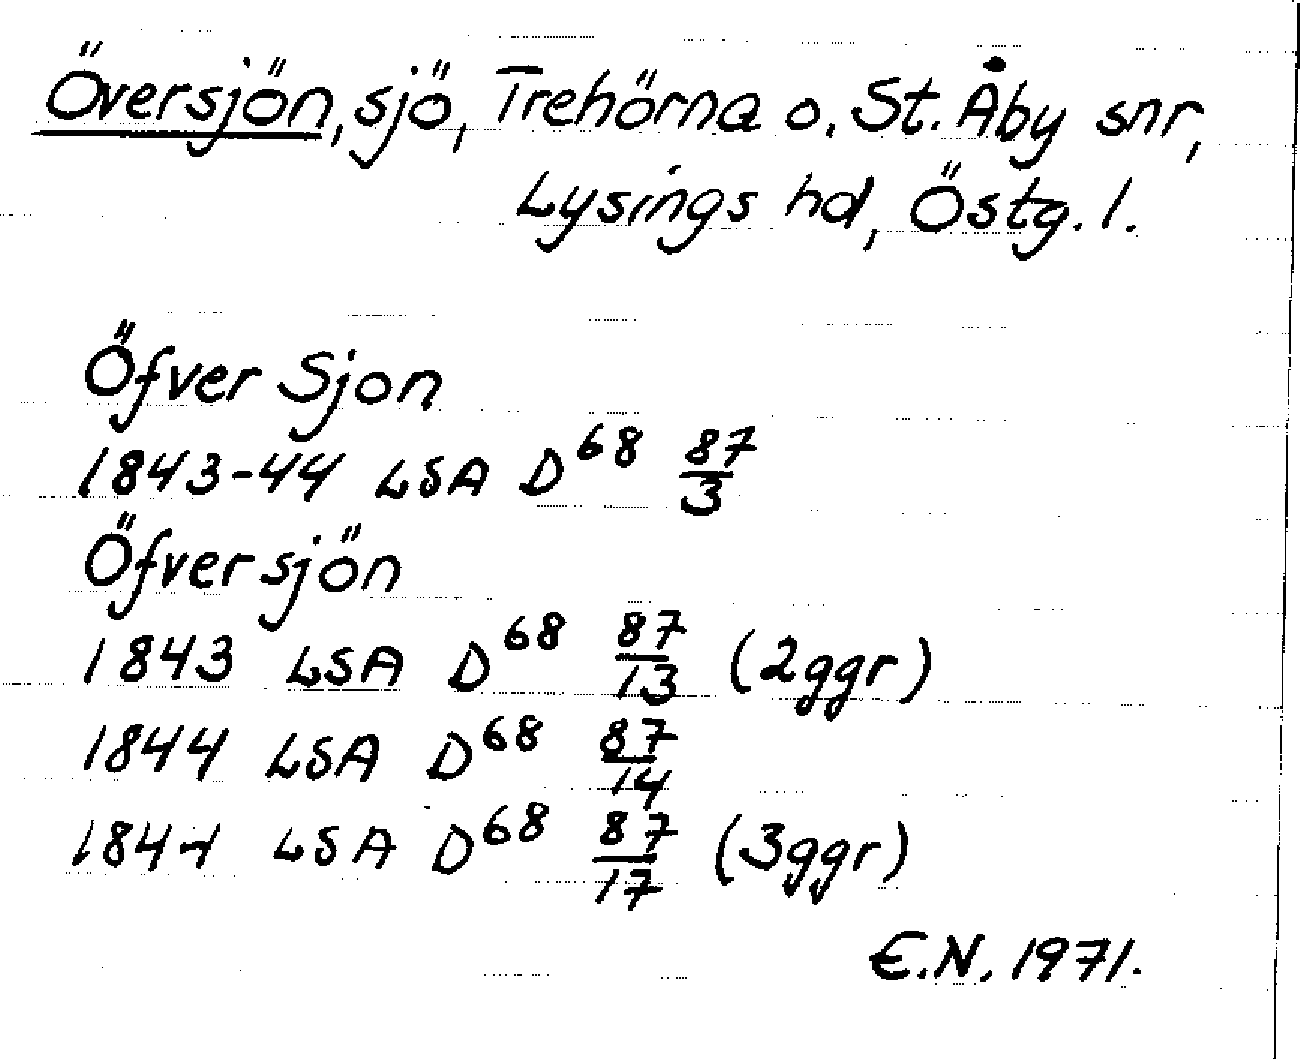 Översjön, sjö, Trehörna o. St. Åby snr,
Lysings hd, Östg. l.
Öfver Sjon
1843-44 LSA D⁶⁸ 87/3
Öfversjön
1843 LSA D⁶⁸ 87/13 (2ggr)
1844 LSA D⁶⁸ 87/14
1844 LSA D⁶⁸ 87/17 (3ggr)
E.N. 1971.